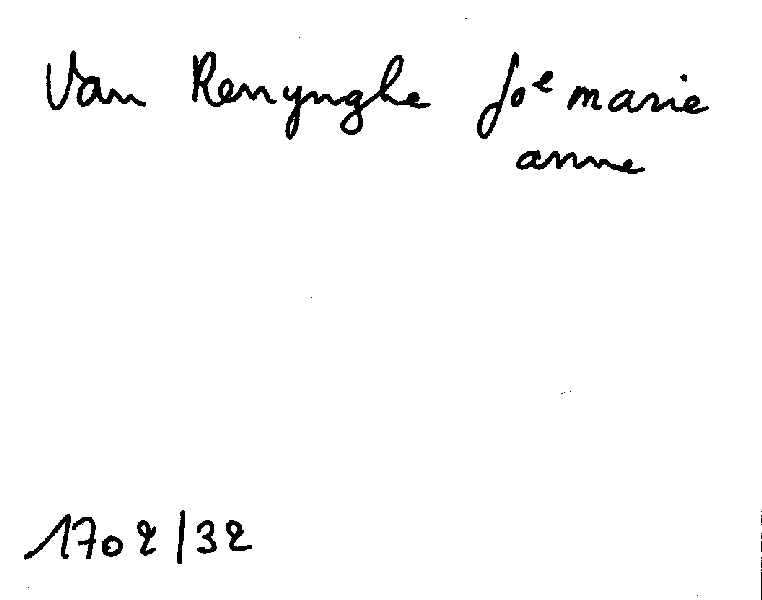 Van Renynghe Jo^e marie
anne
1702/32